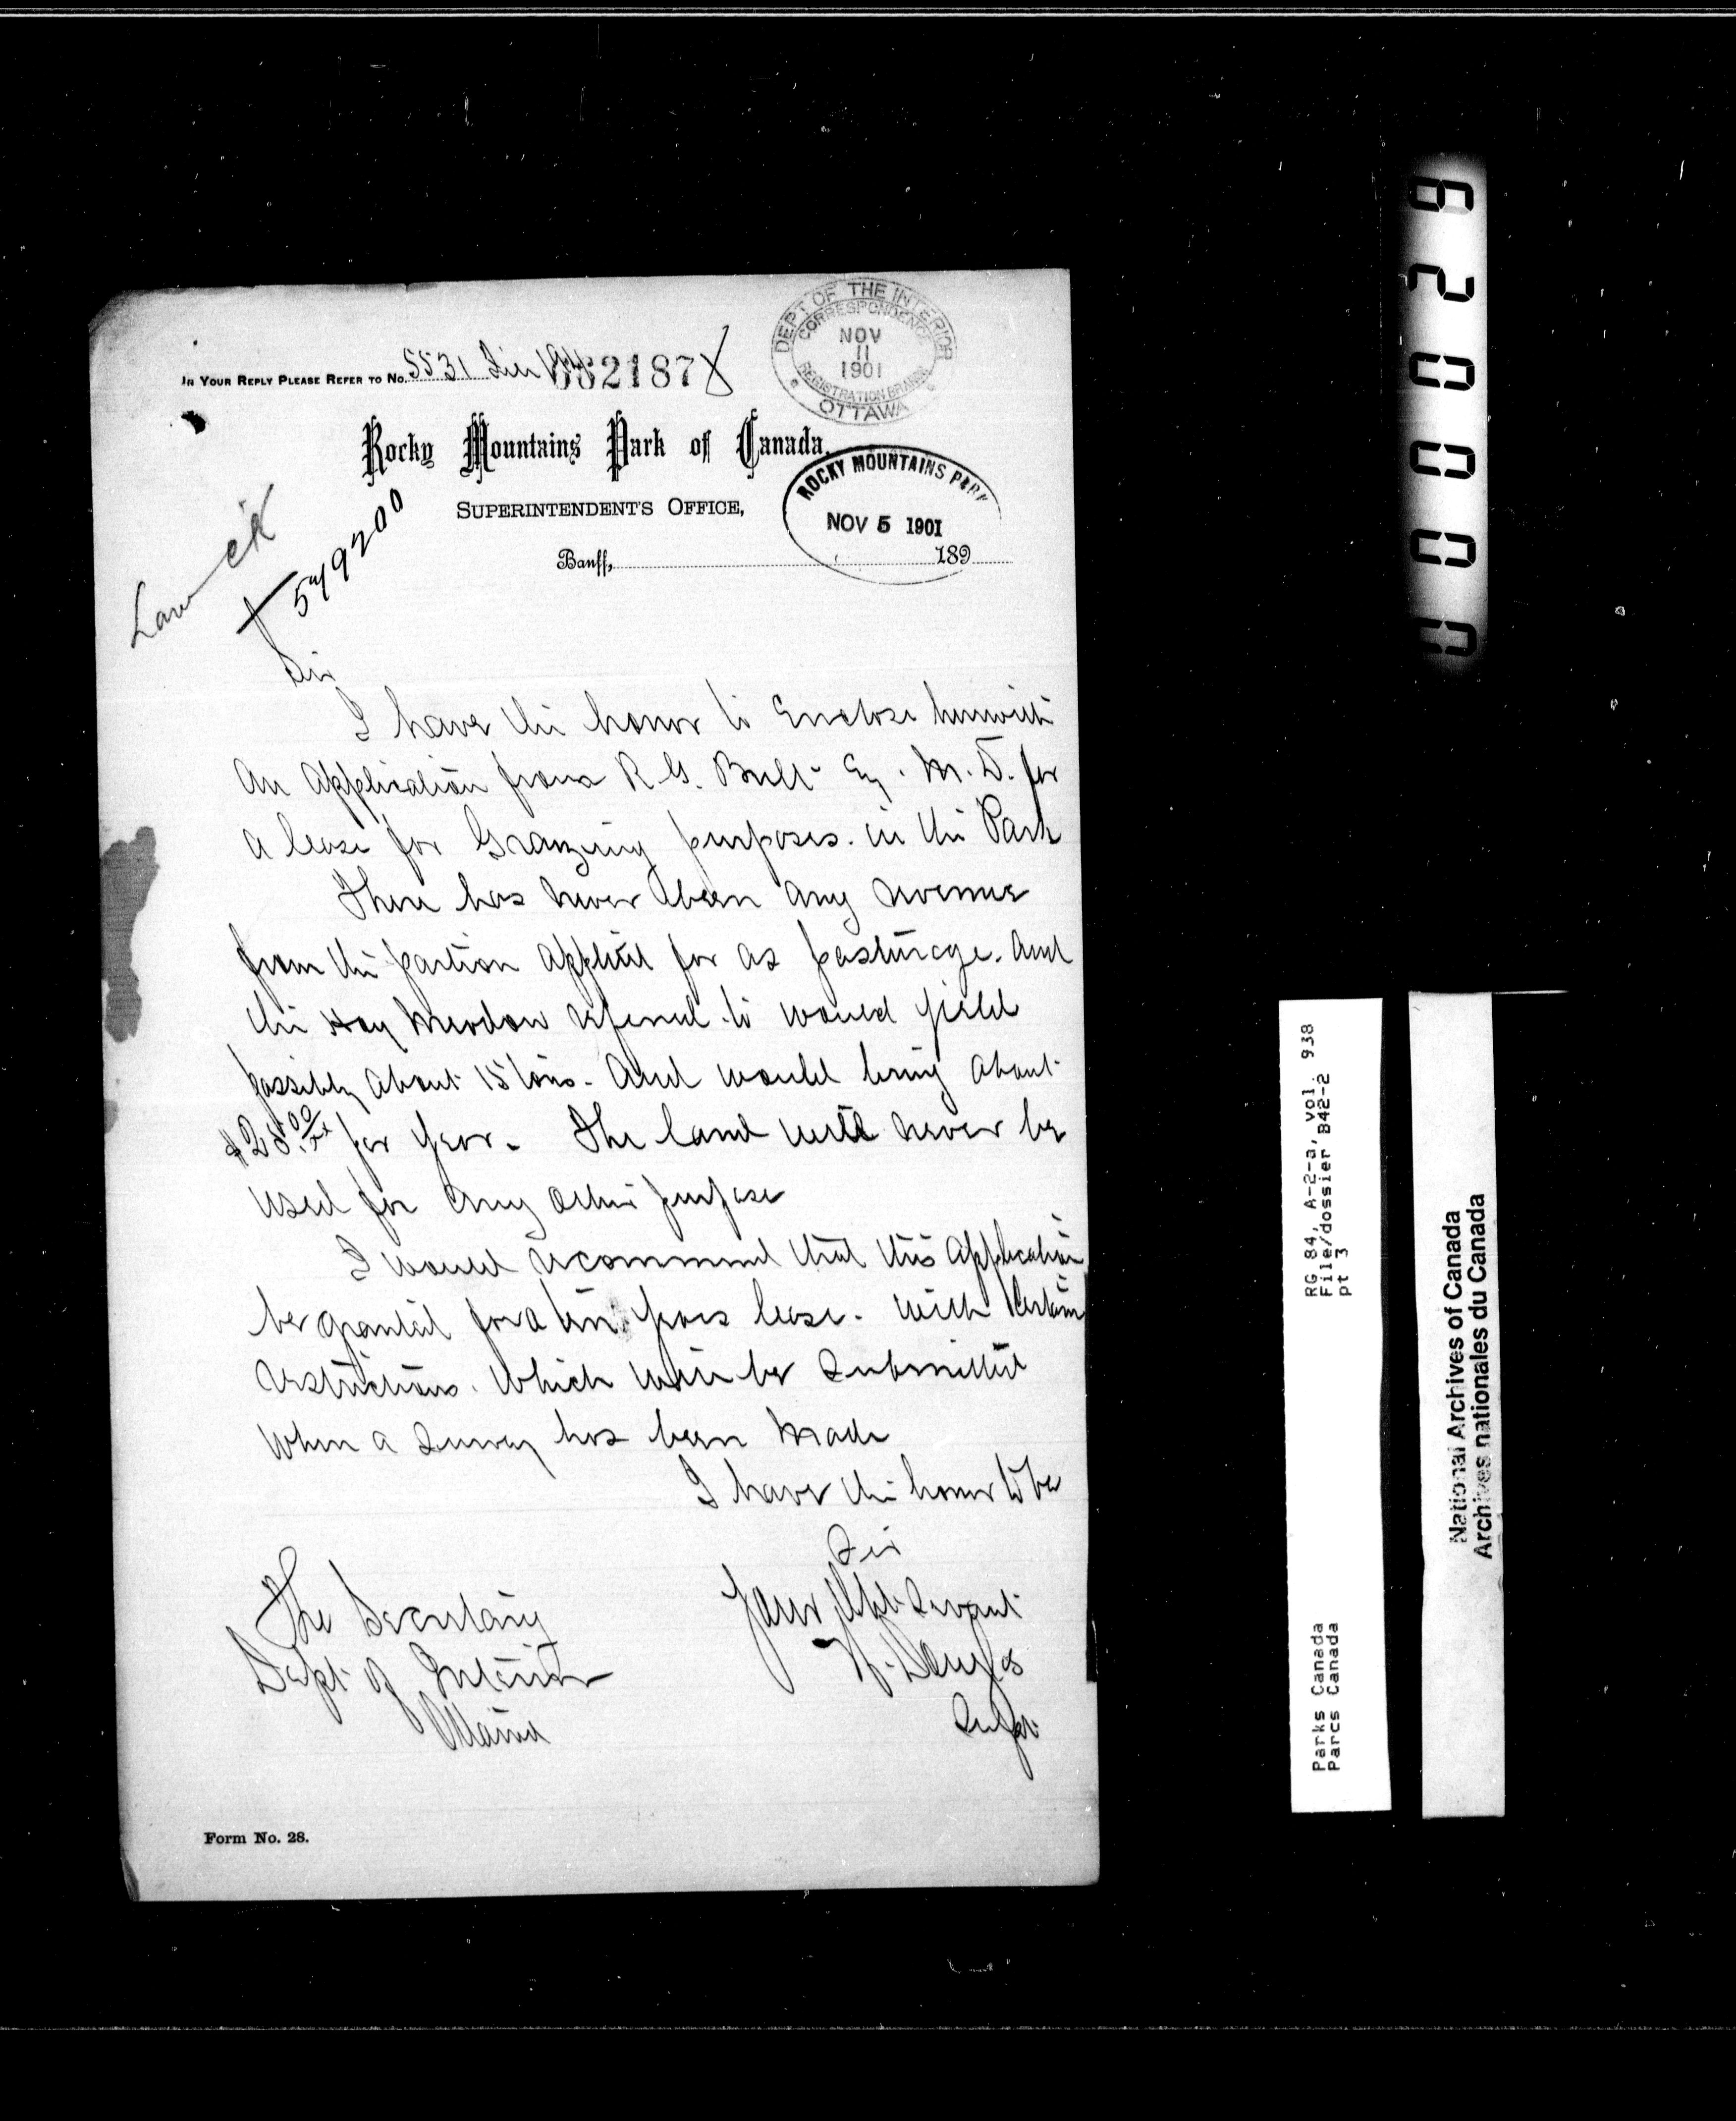 IN YOUR REPLY PLEASE REFER TO NO. 5531
2187
DEPT OF THE INTERIOR
CORRESPONDENCE
NOV
11
1901
REGISTRATION BRANCH
OTTAWA
Rocky Mountains Park of Canada.
SUPERINTENDENT'S OFFICE,
ROCKY MOUNTAINS PARK
NOV 5 1901
Banff, 189
Law
579200
Sir
I have the honor to Enclose herewith
An Application from R. G. Brett Esq. M. D. for
a lease for Grazing purposes. in the Park
There has never been any revenue
from the portion applied for as pasturage. And
the Hay Meadow referred to would yield
possibly about 15 tons. And would bring about
$25.00 per year. The land will never be
used for any other purpose
I would recommend that this Application
be granted for a ten years lease. With Certain
restrictions. Which will be Submitted
When a Survey has been Made
I have the honor to be
Sir
Your Obt. Servant
H. Douglas
Supt.
The Secretary
Dept. of Interior
Ottawa
Form No. 28.
RG 84, A-2-a, vol. 938
File/dossier B42-2
pt 3
Parks Canada
Parcs Canada
National Archives of Canada
Archives nationales du Canada